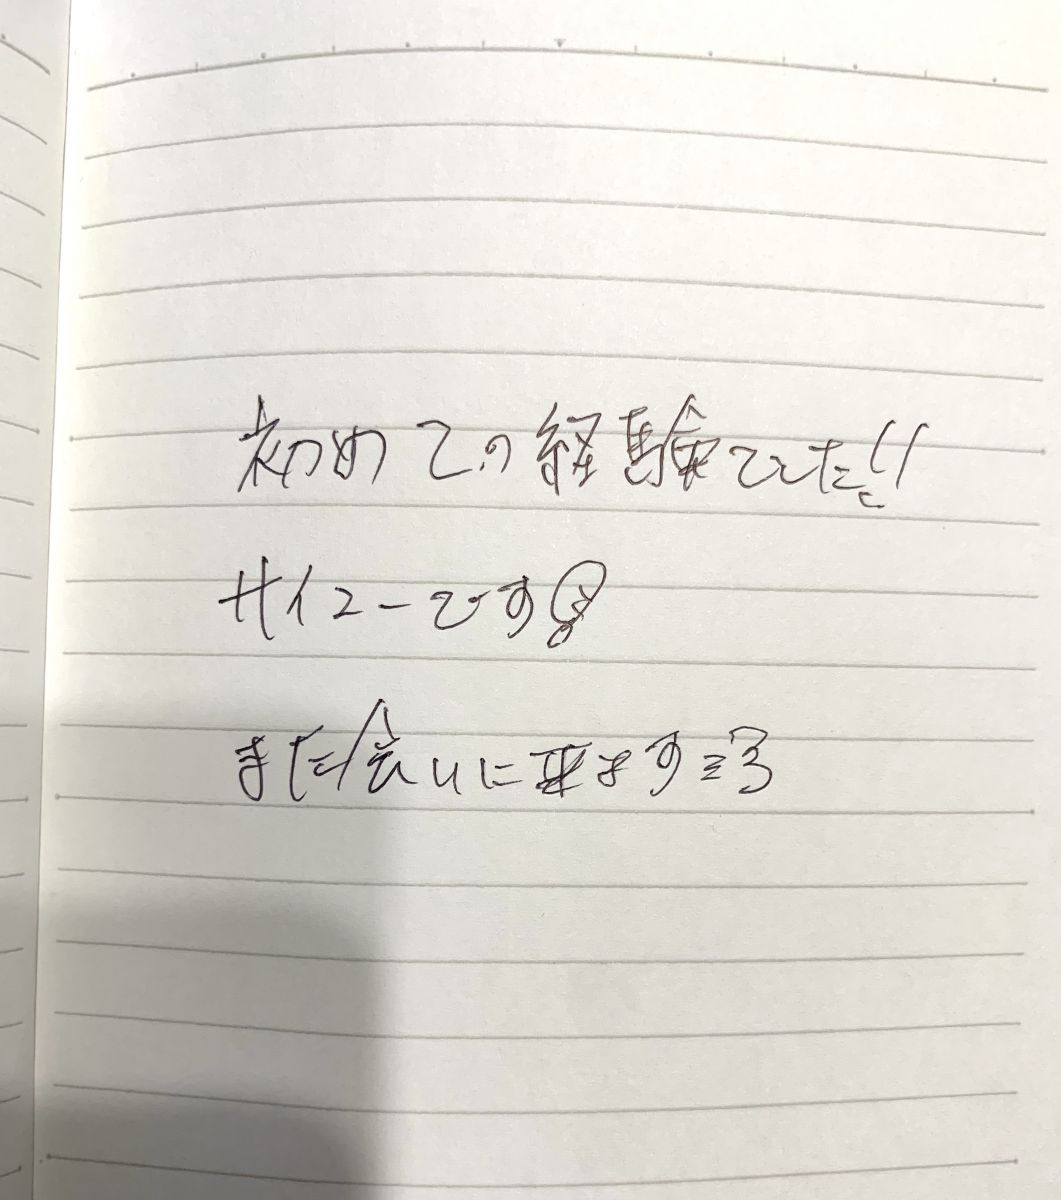 初めての経験でした!!
サイコーです!
また会いに来ますね